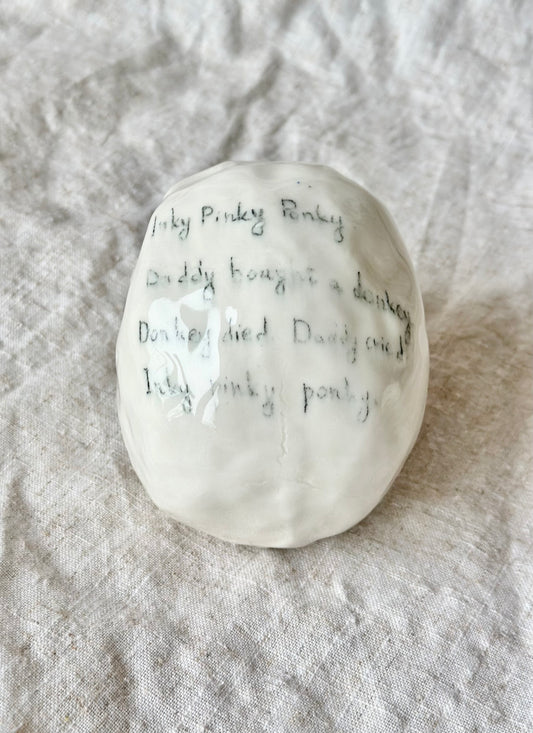 Inky Pinky Ponky
Daddy bought a donkey
Donkey died. Daddy cried
Inky pinky ponky.